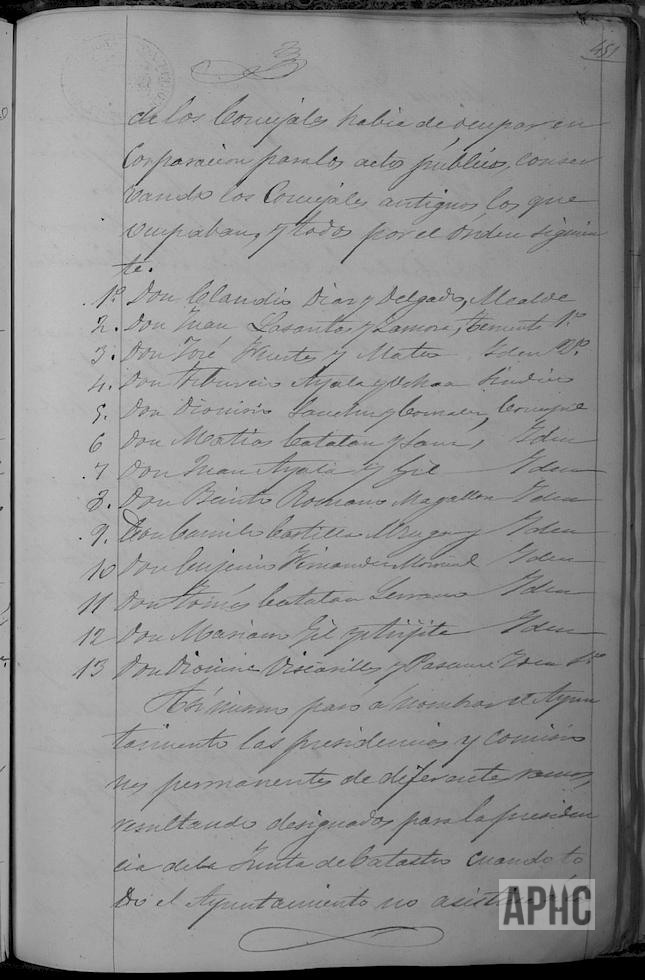 3
451
de los Concejales habia de ocupar en
Corporacion para los actos públicos, conser
vando los Concejales antiguos los que
ocupaban, y todos por el órden siguien
te.
1º Don Claudio Diar y Delgado, Alcalde
2. Don Juan Lasanta y Zamora, Teniente 1º
3. Don José Fuertes y Mateo Yden 2º.
4. Don Tiburcio Ayala y Ochoa Sindico
5. Don Dionisio Sanchez y Gonzalez, Concejal
6 Don Matias Catalan y Sanz, Yden
7 Don Juan Ayala y Gil Yden
8. Don Benito Romano Magallon Yden
9. Don Camilo Castilla Yden
10 Don Eugenio Fernandez Yden
11 Don Tomás Catalan Serrano Yden
12 Don Mariano Gil y Yden
13 Don Dionisio y Yden
Asimismo pasó á nombrar el Ayun
tamiento las presidencias y comisio
nes permanentes de diferentes ramos,
resultando designados para la presiden
cia de la Junta de Catastro cuando to
do el Ayuntamiento no
APHC